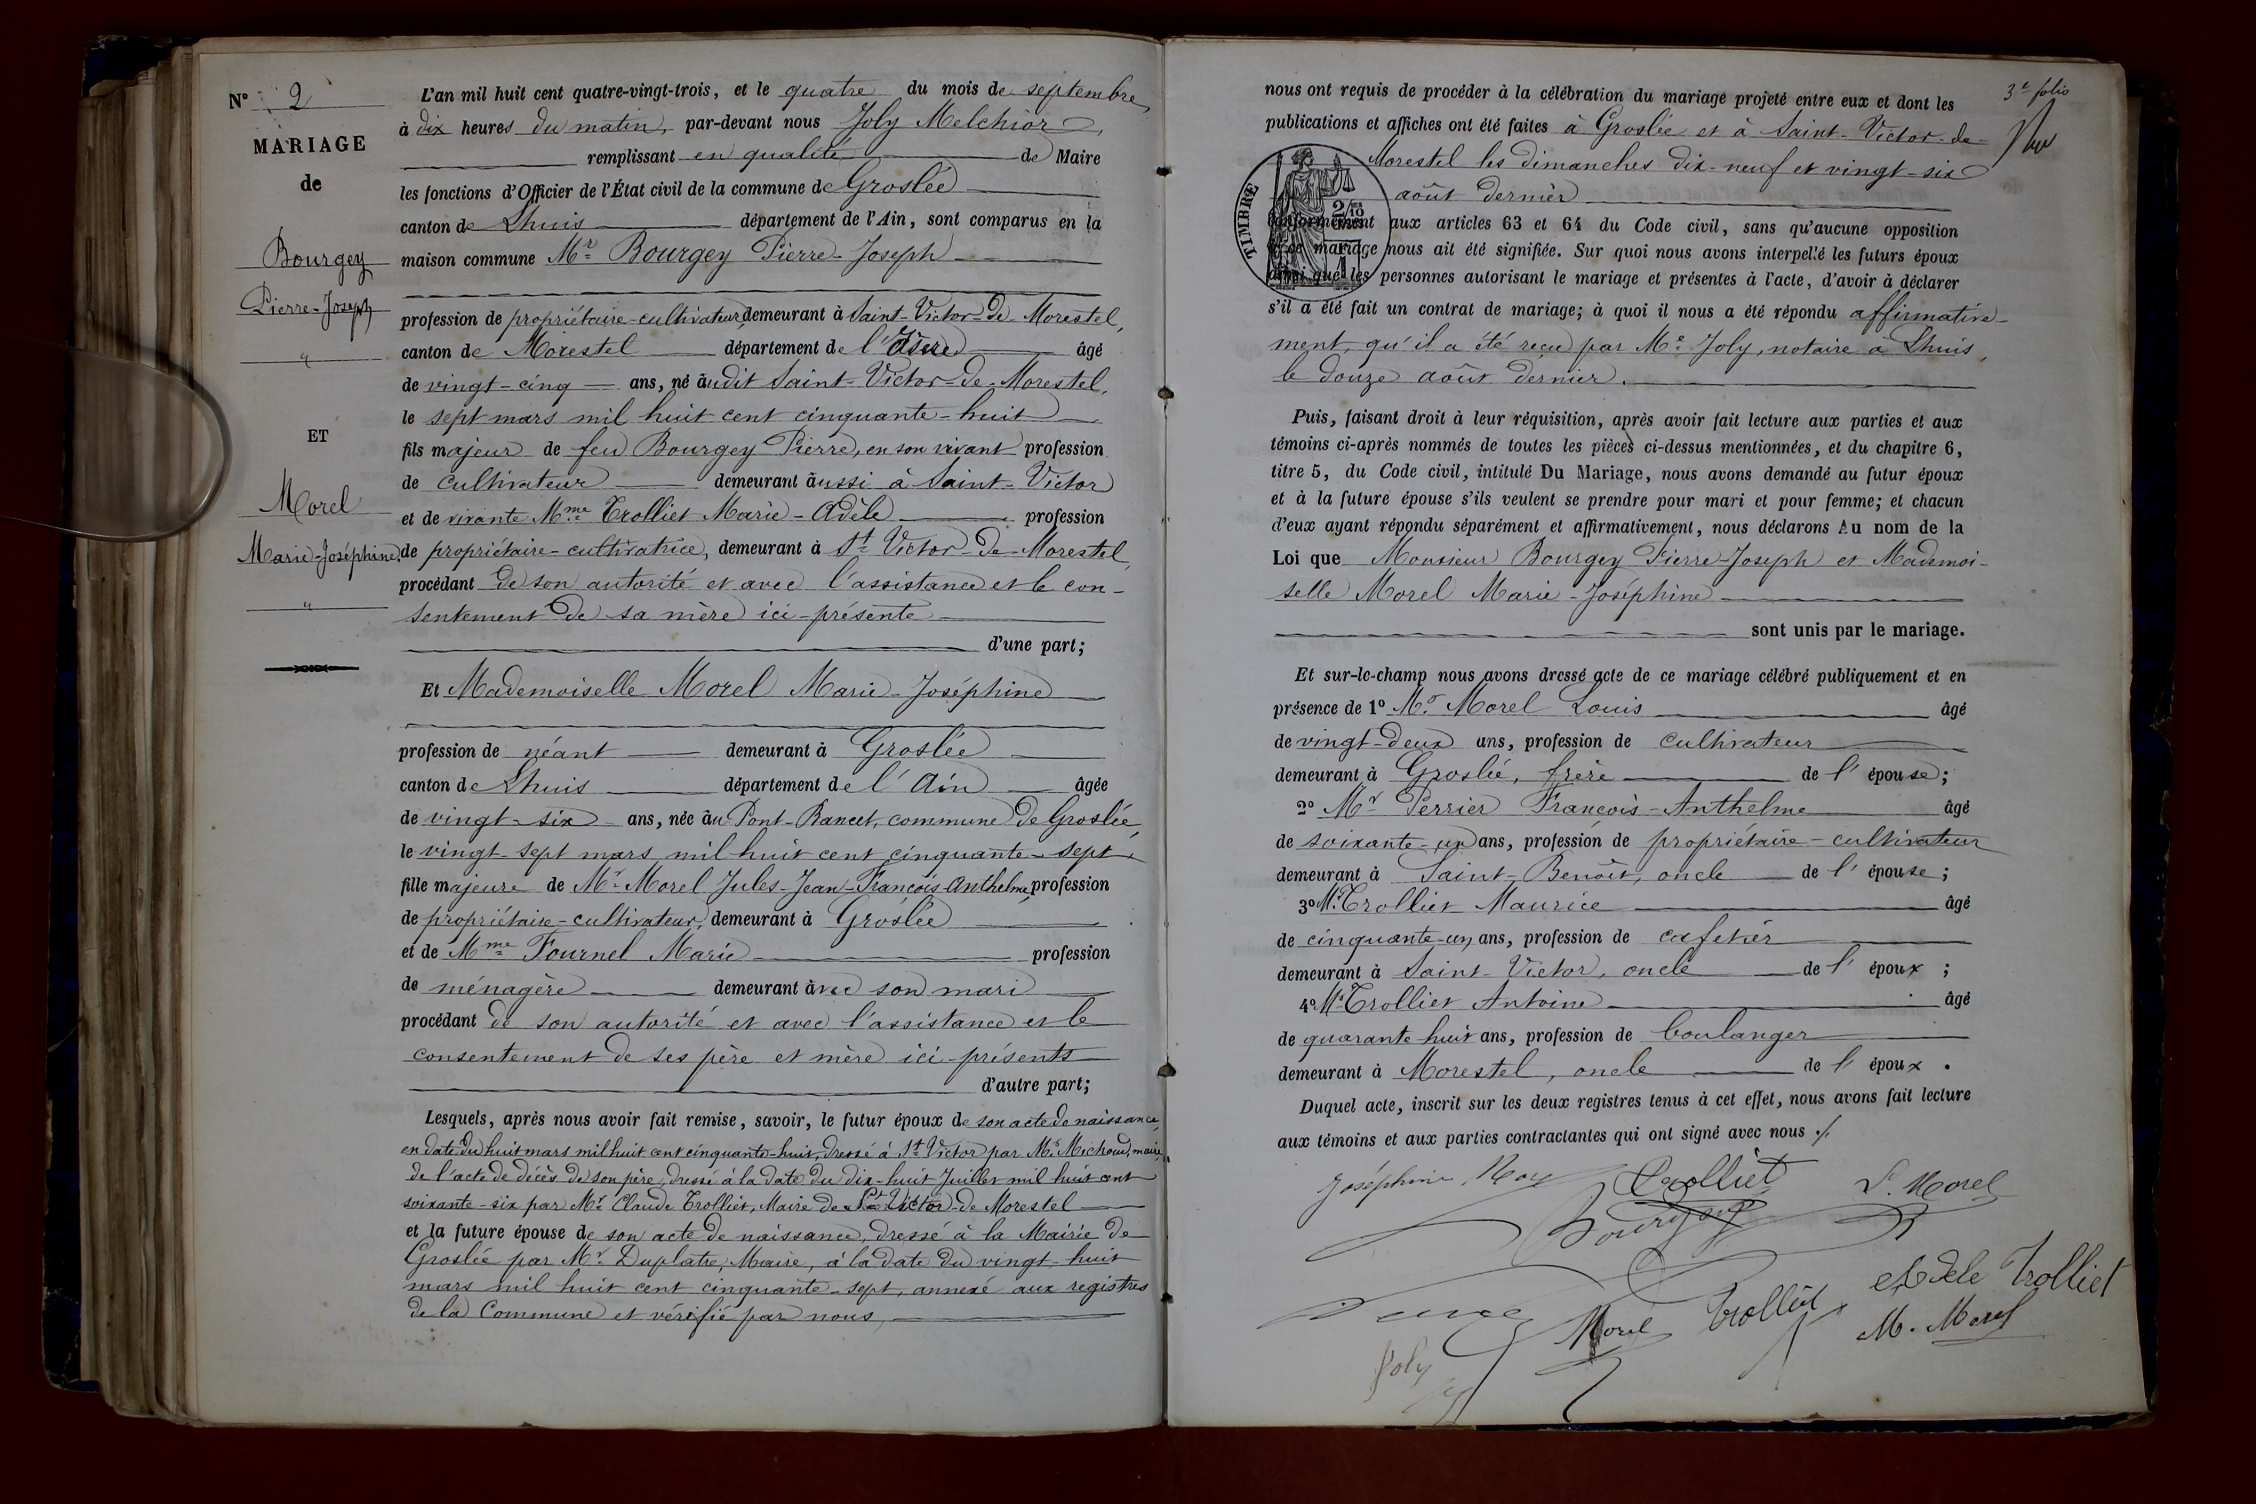 N° 2
MARIAGE
de
Bourgey
Pierre-Joseph
"
ET
Morel
Marie-Joséphine.
"
L'an mil huit cent quatre-vingt-trois, et le quatre du mois de septembre,
à dix heures du matin, par-devant nous Joly Melchior,
remplissant en qualité de Maire
les fonctions d'Officier de l'État civil de la commune de Groslée
canton de Lhuis département de l'Ain, sont comparus en la
maison commune Mr Bourgey Pierre-Joseph
profession de propriétaire-cultivateur, demeurant à Saint-Victor-de-Morestel,
canton de Morestel département de l'Isère âgé
de vingt-cinq ans, né audit Saint-Victor-de-Morestel,
le sept mars mil huit cent cinquante-huit
fils majeur de feu Bourgey Pierre, en son vivant profession
de cultivateur demeurant aussi à Saint-Victor
et de vivante Mme Trolliet Marie-Adèle profession
de propriétaire-cultivatrice, demeurant à St Victor-de-Morestel,
procédant de son autorité et avec l'assistance et le con-
sentement de sa mère ici-présente
d'une part;
Et Mademoiselle Morel Marie-Joséphine
profession de néant demeurant à Groslée
canton de Lhuis département de l'Ain âgée
de vingt-six ans, née au Pont-Bancet, commune de Groslée,
le vingt-sept mars mil huit cent cinquante-sept,
fille majeure de Mr Morel Jules-Jean-François-Anthelme, profession
de propriétaire-cultivateur, demeurant à Groslée
et de Mme Fournel Marie profession
de ménagère demeurant avec son mari
procédant de son autorité et avec l'assistance et le
consentement de ses père et mère ici-présents
d'autre part;
Lesquels, après nous avoir fait remise, savoir, le futur époux de son acte de naissance,
en date du huit mars mil huit cent cinquante-huit, dressé à St Victor par Mr Michoud, maire,
de l'acte de décès de son père, dressé à la date du dix-huit Juillet mil huit cent
soixante-six par Mr Claude Trolliet, Maire de St Victor-de-Morestel
et la future épouse de son acte de naissance, dressé à la Mairie de
Groslée par Mr Duplatre, Maire, à la date du vingt-huit
mars mil huit cent cinquante-sept, annexé aux registres
de la Commune et vérifié par nous,
3e folio
nous ont requis de procéder à la célébration du mariage projeté entre eux et dont les
publications et affiches ont été faites à Groslée et à Saint-Victor-de-
Morestel les dimanches dix-neuf et vingt-six
août dernier
TIMBRE
conformément aux articles 63 et 64 du Code civil, sans qu'aucune opposition
à ce mariage nous ait été signifiée. Sur quoi nous avons interpellé les futurs époux
ainsi que les personnes autorisant le mariage et présentes à l'acte, d'avoir à déclarer
s'il a été fait un contrat de mariage; à quoi il nous a été répondu affirmative-
ment, qu'il a été reçu par Me Joly, notaire à Lhuis,
le douze août dernier.
Puis, faisant droit à leur réquisition, après avoir fait lecture aux parties et aux
témoins ci-après nommés de toutes les pièces ci-dessus mentionnées, et du chapitre 6,
titre 5, du Code civil, intitulé Du Mariage, nous avons demandé au futur époux
et à la future épouse s'ils veulent se prendre pour mari et pour femme; et chacun
d'eux ayant répondu séparément et affirmativement, nous déclarons Au nom de la
Loi que Monsieur Bourgey Pierre-Joseph et Mademoi-
selle Morel Marie-Joséphine
sont unis par le mariage.
Et sur-le-champ nous avons dressé acte de ce mariage célébré publiquement et en
présence de 1° Mr Morel Louis âgé
de vingt-deux ans, profession de cultivateur
demeurant à Groslée, frère de l'épouse;
2° Mr Perrier François-Anthelme âgé
de soixante-un ans, profession de propriétaire-cultivateur
demeurant à Saint-Benoît, oncle de l'épouse;
3° Mr Trolliet Maurice âgé
de cinquante-un ans, profession de cafetier
demeurant à Saint-Victor, oncle de l'époux;
4° Mr Trolliet Antoine âgé
de quarante-huit ans, profession de boulanger
demeurant à Morestel, oncle de l'époux.
Duquel acte, inscrit sur les deux registres tenus à cet effet, nous avons fait lecture
aux témoins et aux parties contractantes qui ont signé avec nous ./.
Joséphine Trolliet L. Morel
Bourgey
Adele Trolliet
Morel Trolliet M. Morel
Joly